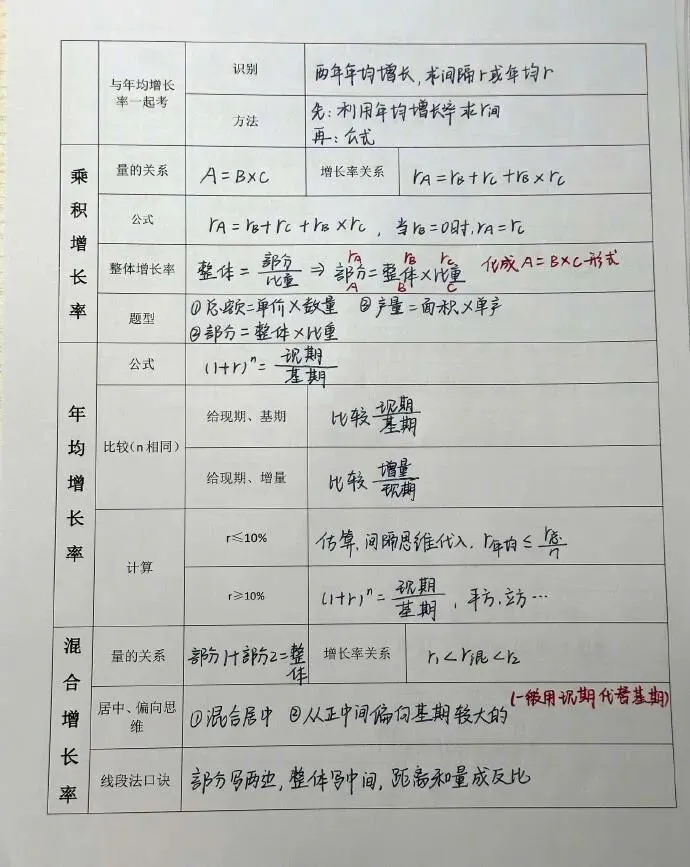 与年均增长率一起考
识别
两年年均增长,求间隔r或年均r
方法
先:利用年均增长率求r间
再:公式
乘积增长率
量的关系
A=B×C
增长率关系
rA=rB+rC+rB×rC
公式
rA=rB+rC+rB×rC,当rB=0时,rA=rC
整体增长率
整体=部分/比重⇒部分=整体×比重
rA rB rC
A B C
化成A=B×C形式
题型
①总额=单价×数量 ②产量=面积×单产
②部分=整体×比重
年均增长率
公式
(1+r)ⁿ=现期/基期
比较(n相同)
给现期、基期
比较现期/基期
给现期、增量
比较增量/现期
计算
r≤10%
估算,间隔思维代入,r年均≤r总/n
r≥10%
(1+r)ⁿ=现期/基期,平方,立方…
混合增长率
量的关系
部分1+部分2=整体
增长率关系
r₁<r混<r₂
居中、偏向思维
①混合居中 ②从正中间偏向基期较大的
(一般用现期代替基期)
线段法口诀
部分写两边,整体写中间,距离和量成反比